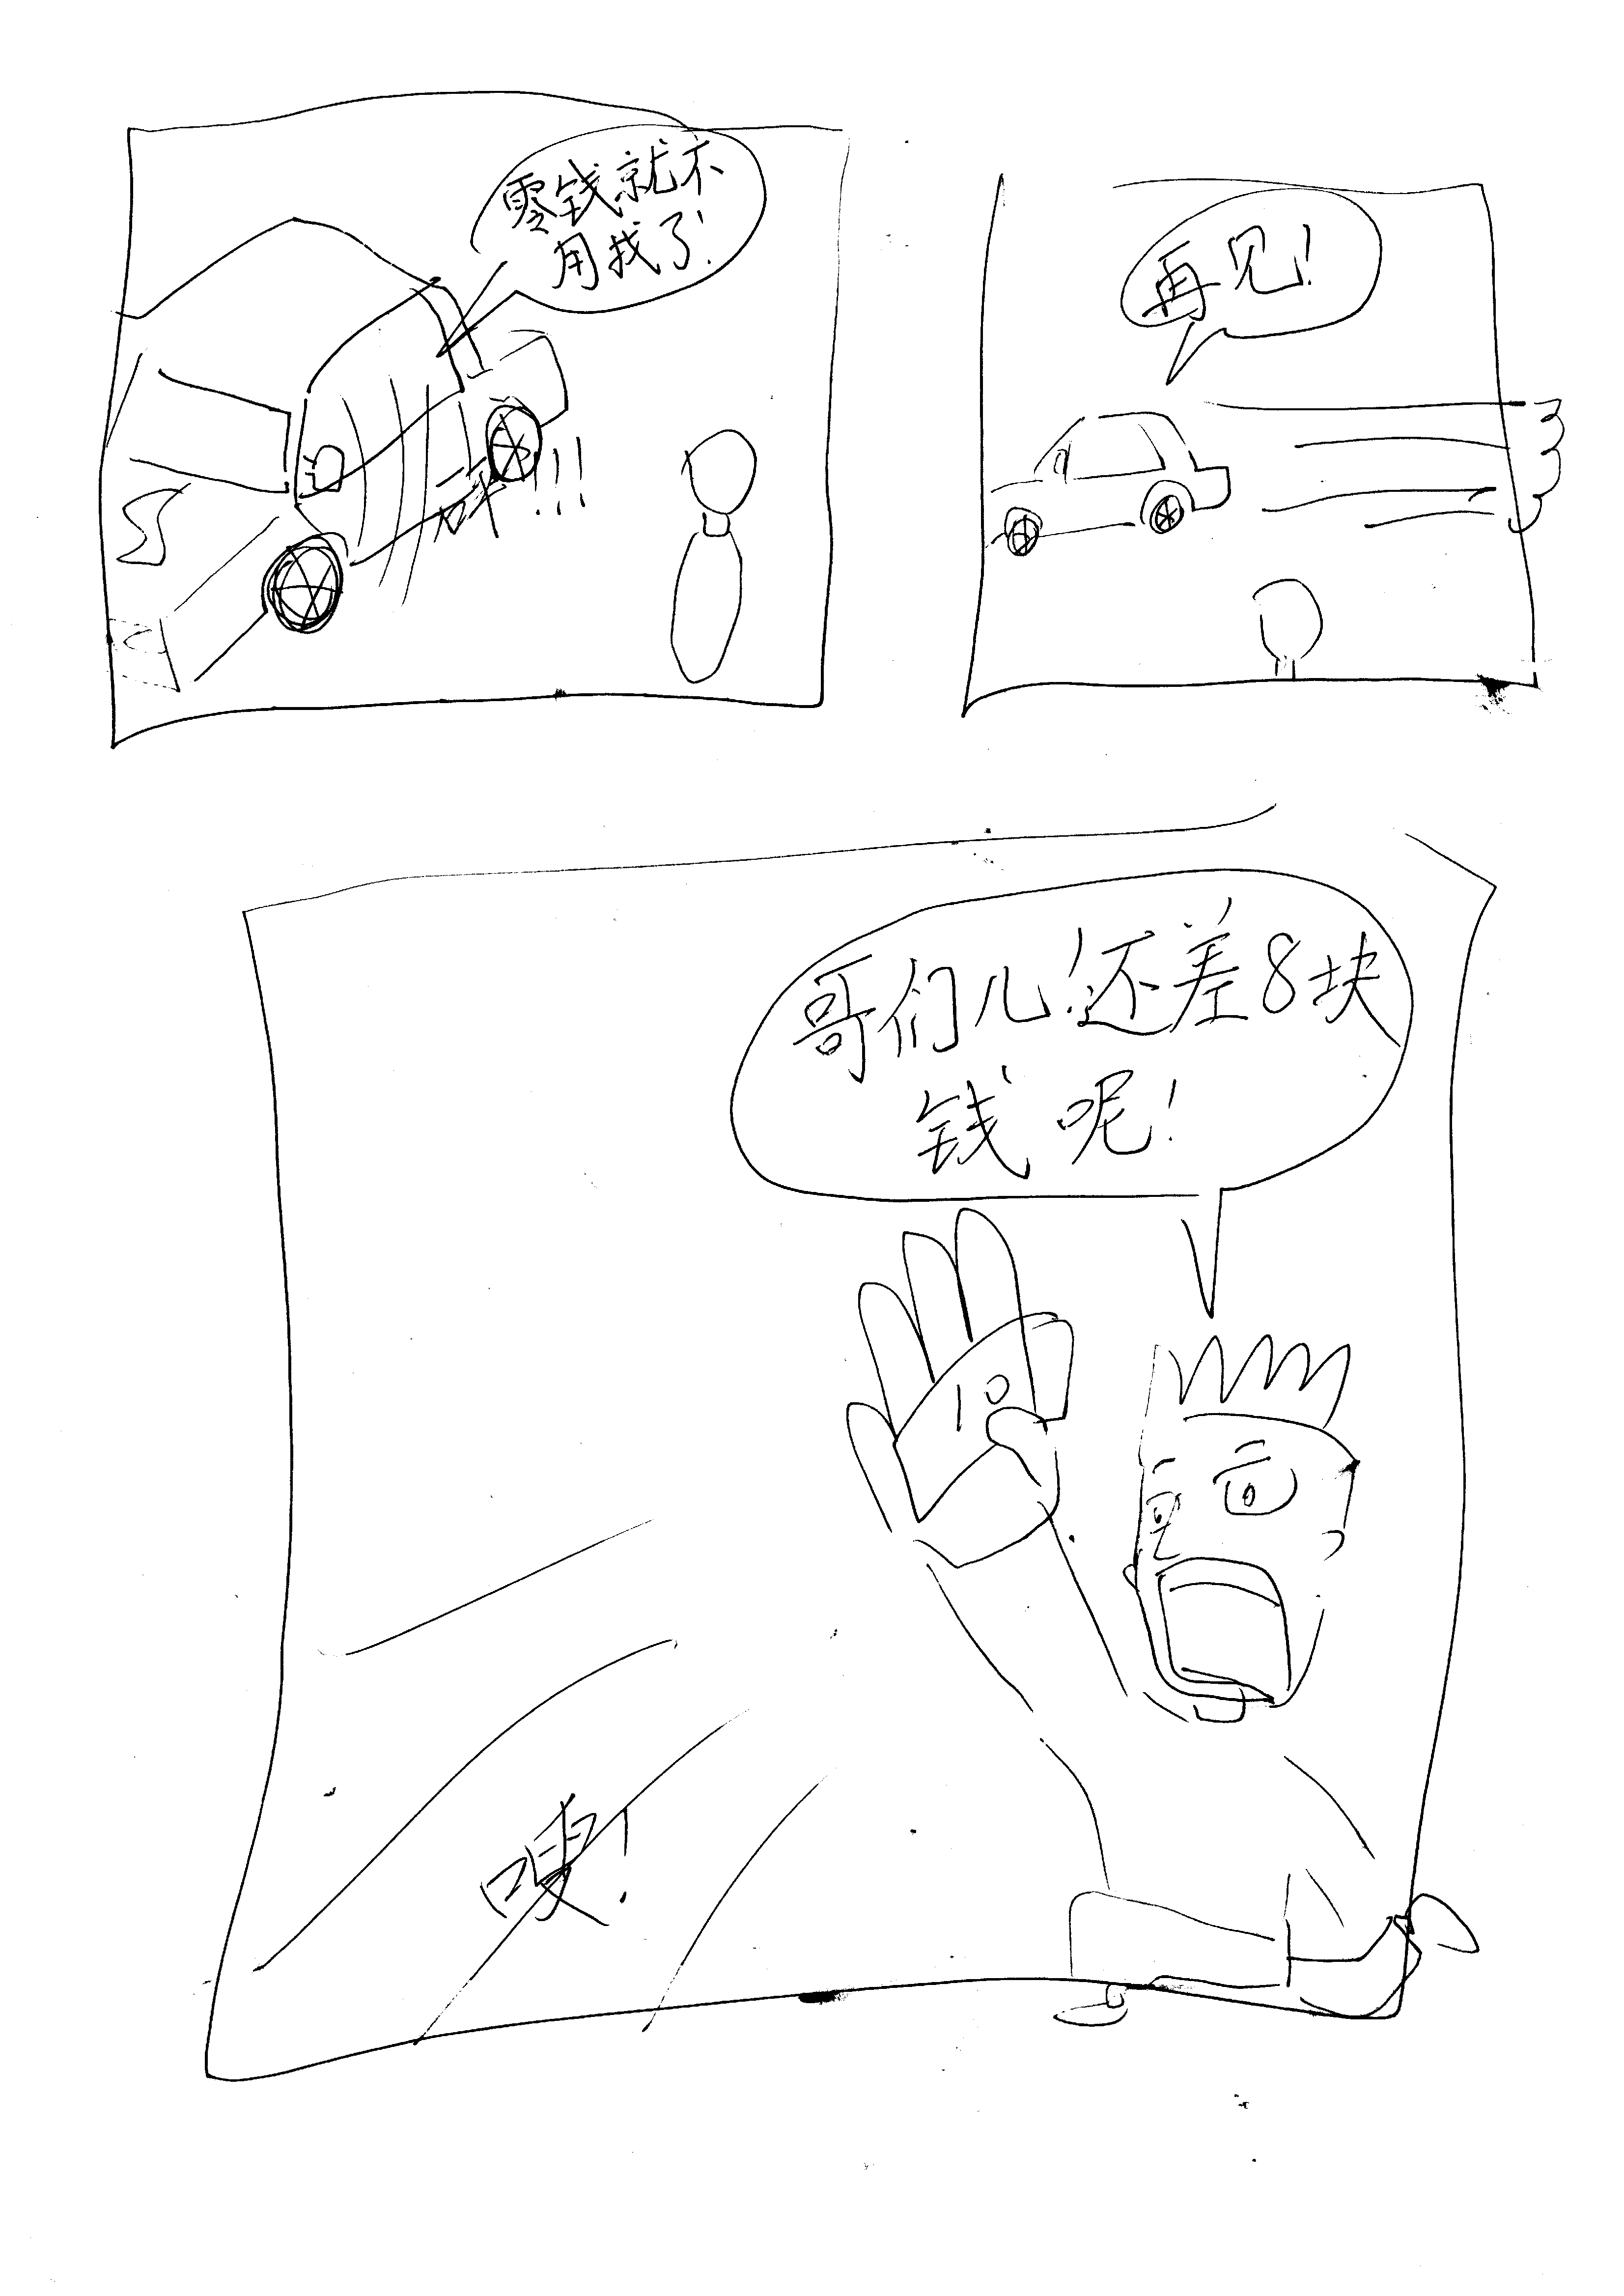 零钱就不
用找了!
!!!
再见!
哥们儿!还差8块
钱呢!
10
嗖!